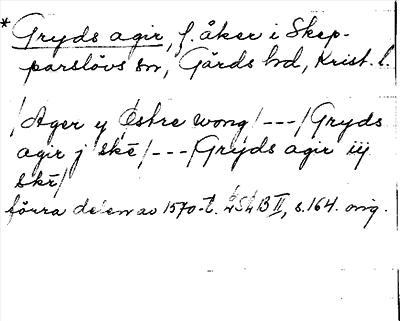 *Gryds agir, f. åker i Skep-
parslövs sn, Gärds hd, Krist. l.
/Ager y Østre wong/---/Gryds
agir j skē/---/Gryds agir iij
skē/
förra delen av 1570-t. LSkB II, s. 164. orig.